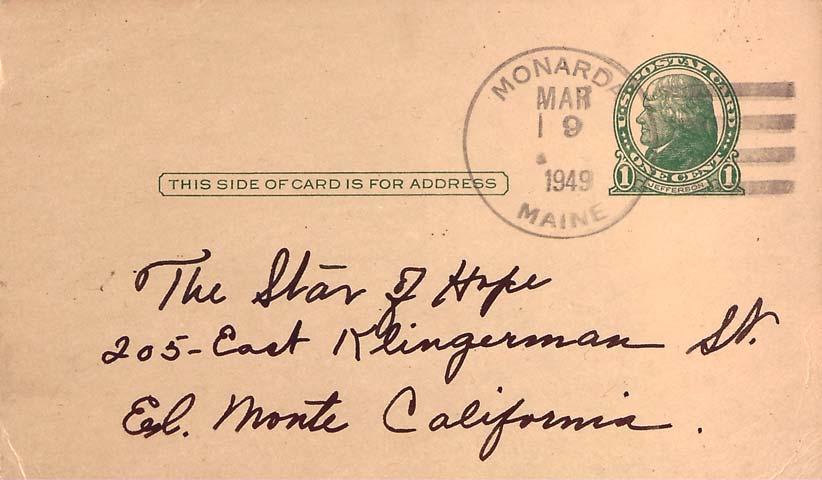 MONARDA
MAR
19
1949
MAINE
U.S. POSTAL CARD
ONE CENT
1 JEFFERSON 1
THIS SIDE OF CARD IS FOR ADDRESS
The Star of Hope
205-East Klingerman St.
El. Monte California.